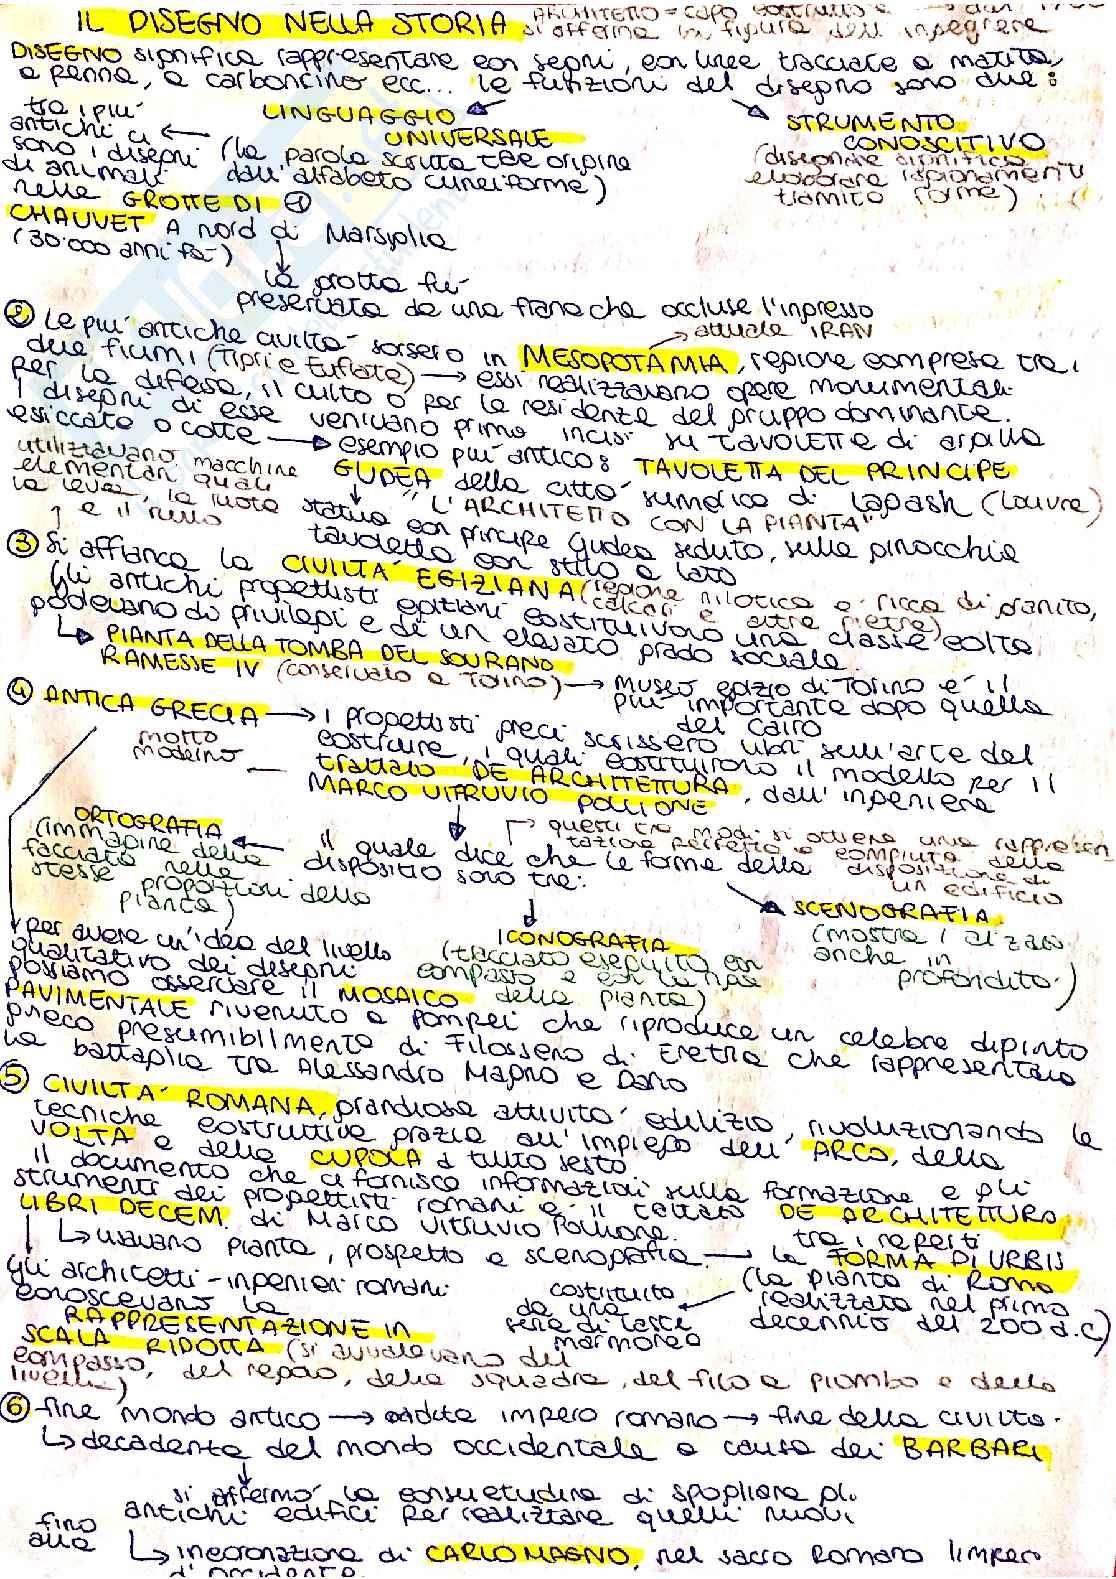 IL DISEGNO NELLA STORIA
ARCHITETTO = capo
si afferma la figura dell'ingegnere
DISEGNO significa rappresentare con segni, con linee tracciate a matita,
a penna, a carboncino ecc... le funzioni del disegno sono due:
LINGUAGGIO
UNIVERSALE
(la parola scritta trae origine
dall'alfabeto cuneiforme)
STRUMENTO
CONOSCITIVO
(disegnare significa
elaborare ragionamenti
tramite forme)
tra i più
antichi ci
sono i disegni
di animali
nelle GROTTE DI ①
CHAUVET A nord di Marsiglia
(30.000 anni fa)
la grotta fu
preservata da una frana che occluse l'ingresso
② Le più antiche civiltà sorsero in MESOPOTAMIA, regione compresa tra i
attuale IRAN
due fiumi (Tigri e Eufrate) → essi realizzavano opere monumentali
per la difesa, il culto o per le residenze del gruppo dominante.
I disegni di esse venivano prima incisi su TAVOLETTE di argilla
essiccate o cotte → esempio più antico: TAVOLETTA DEL PRINCIPE
GUDEA della città sumerica di Lagash (Louvre)
"L'ARCHITETTO CON LA PIANTA"
statua con principe Gudea seduto, sulle ginocchia
tavoletta con stilo a lato
utilizzavano macchine
elementari quali
la leva, la ruota
e il rullo
③ Si affianca la CIVILTA' EGIZIANA (regione nilotica e ricca di granito,
calcari e altre pietre)
Gli antichi progettisti egiziani costituivano una classe colta
godevano di privilegi e di un elevato grado sociale.
↳ PIANTA DELLA TOMBA DEL SOVRANO
RAMESSE IV (conservata a Torino) → museo egizio di Torino è il
più importante dopo quello
del Cairo
④ ANTICA GRECIA → i progettisti greci scrissero libri sull'arte del
costruire, i quali costituirono il modello per il
molto
moderno
trattato DE ARCHITETTURA, dall'ingegnere
MARCO VITRUVIO POLLIONE
il quale dice che le forme della
dispositio sono tre:
questi tre modi si ottiene una rappresen
tazione perfetta e compiuta della
disposizione di
un edificio
ORTOGRAFIA
(immagine della
facciata nelle
stesse proporzioni della
pianta)
ICONOGRAFIA
(tracciato eseguito con
compasso e con la riga
della pianta)
SCENOGRAFIA
(mostra i alzato
anche in
profondità)
per avere un'idea del livello
qualitativo dei disegni
possiamo osservare il MOSAICO
PAVIMENTALE rivenuto a Pompei che riproduce un celebre dipinto
greco presumibilmente di Filosseno di Eretria che rappresentava
la battaglia tra Alessandro Magno e Dario
⑤ CIVILTA' ROMANA, grandiosa attività edilizia, rivoluzionando le
tecniche costruttive grazie all'impiego dell'ARCO, della
VOLTA e della CUPOLA a tutto sesto.
Il documento che ci fornisce informazioni sulla formazione e gli
strumenti dei progettisti romani è il trattato DE ARCHITETTURA
LIBRI DECEM. di Marco Vitruvio Pollione.
↳ usavano pianta, prospetto e scenografia → tra i reperti
la FORMA DI URBIS
(la pianta di Roma
realizzata nel primo
decennio del 200 d.C)
costituita
da una
serie di lastre
marmoree
Gli architetti-ingenieri romani
conoscevano la
RAPPRESENTAZIONE IN
SCALA RIDOTTA (si avvalevano del
compasso, del regolo, della squadra, del filo a piombo e della
livella)
⑥ fine mondo antico → caduta impero romano → fine della civiltà
↳ decadenza del mondo occidentale a causa dei BARBARI
si affermò la consuetudine di spogliare gli
antichi edifici per realizzare quelli nuovi
fino
alla
↳ incoronazione di CARLO MAGNO, nel sacro Romano Impero
d'occidente